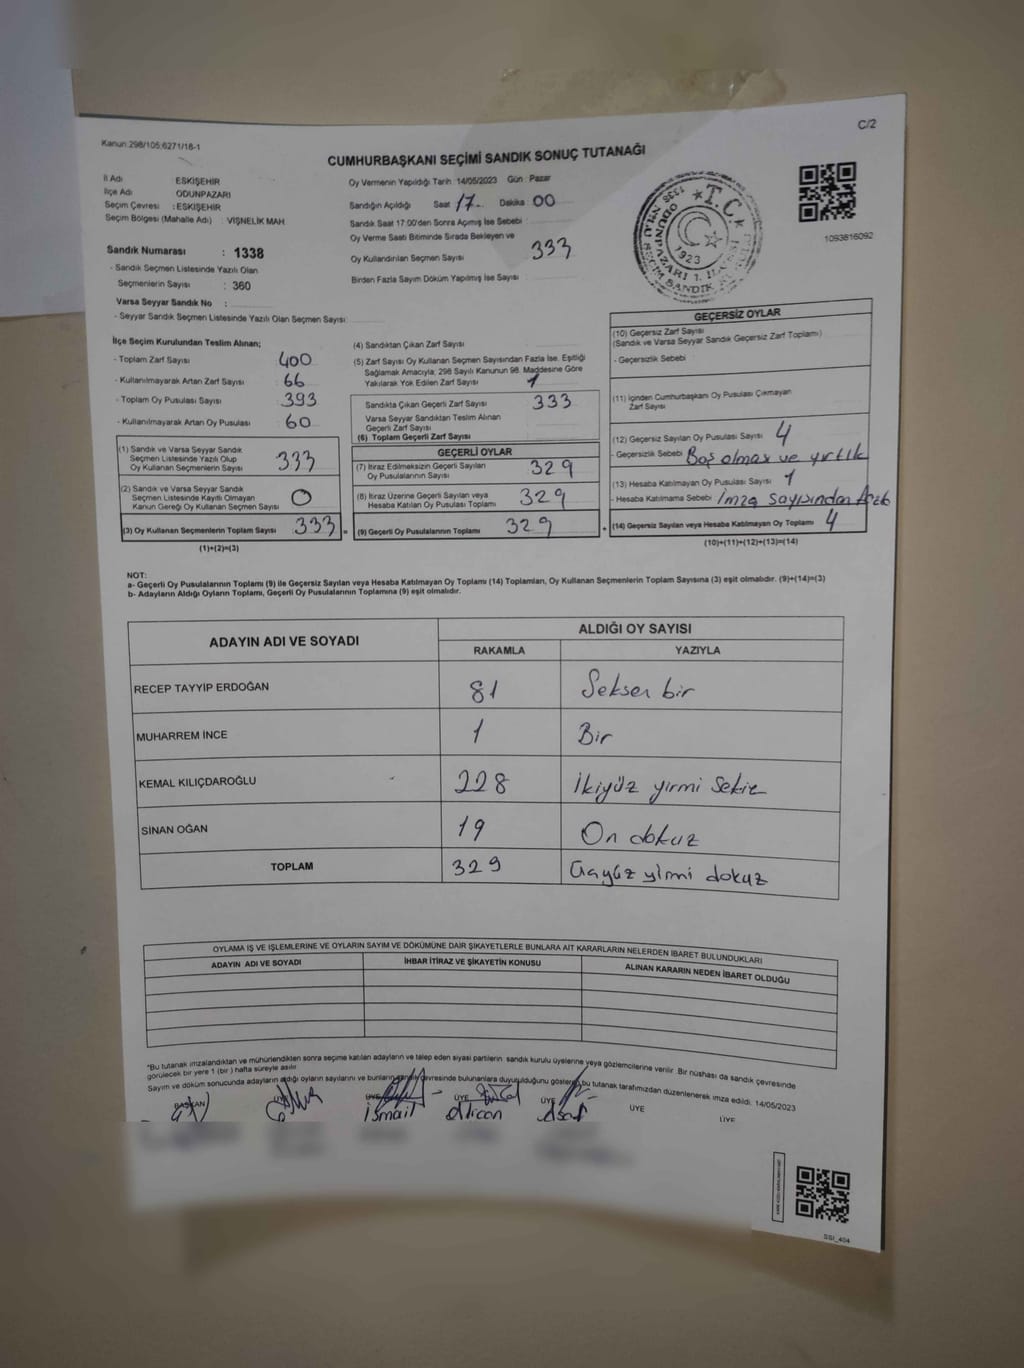 C/2
Kanun:298/105;6271/18-1
CUMHURBAŞKANI SEÇİMİ SANDIK SONUÇ TUTANAĞI
İl Adı ESKİŞEHİR
İlçe Adı ODUNPAZARI
Seçim Çevresi : ESKİŞEHİR
Seçim Bölgesi (Mahalle Adı) : VİŞNELİK MAH.
Sandık Numarası : 1338
- Sandık Seçmen Listesinde Yazılı Olan
Seçmenlerin Sayısı : 360
Varsa Seyyar Sandık No :
- Seyyar Sandık Seçmen Listesinde Yazılı Olan Seçmen Sayısı:
Oy Vermenin Yapıldığı Tarih :14/05/2023 Gün : Pazar
Sandığın Açıldığı Saat :17 Dakika : 00
Sandık Saat 17:00'den Sonra Açımış İse Sebebi :
Oy Verme Saati Bitiminde Sırada Bekleyen ve
Oy Kullandırılan Seçmen Sayısı 333
Birden Fazla Sayım Döküm Yapılmış İse Sayısı :
T.C.
1923
1093816092
İlçe Seçim Kurulundan Teslim Alınan;
- Toplam Zarf Sayısı 400
- Kullanılmayarak Artan Zarf Sayısı 66
- Toplam Oy Pusulası Sayısı 393
- Kullanılmayarak Artan Oy Pusulası 60
(1) Sandık ve Varsa Seyyar Sandık
Seçmen Listesinde Yazılı Olup
Oy Kullanan Seçmenlerin Sayısı 333
(2) Sandık ve Varsa Seyyar Sandık
Seçmen Listesinde Kayıtlı Olmayan
Kanun Gereği Oy Kullanan Seçmenlerin Sayısı 0
(3) Oy Kullanan Seçmenlerin Toplam Sayısı 333 =
(1)+(2)=(3)
(4) Sandıktan Çıkan Zarf Sayısı
(5) Zarf Sayısı Oy Kullanan Seçmen Sayısından Fazla İse, Eşitliği
Sağlamak Amacıyla; 298 Sayılı Kanunun 98. Maddesine Göre
Yakılarak Yok Edilen Zarf Sayısı 1
Sandıkta Çıkan Geçerli Zarf Sayısı 333
Varsa Seyyar Sandıktan Teslim Alınan
Geçerli Zarf Sayısı
(6) Toplam Geçerli Zarf Sayısı
GEÇERLİ OYLAR
(7) İtiraz Edilmeksizin Geçerli Sayılan
Oy Pusulalarının Sayısı 329
(8) İtiraz Üzerine Geçerli Sayılan veya
Hesaba Katılan Oy Pusulası Toplamı 329
(9) Geçerli Oy Pusulalarının Toplamı 329 +
GEÇERSİZ OYLAR
(10) Geçersiz Zarf Sayısı
(Sandık ve Varsa Seyyar Sandık Geçersiz Zarf Toplamı)
- Geçersizlik Sebebi
(11) İçinden Cumhurbaşkanı Oy Pusulası Çıkmayan
Zarf Sayısı
(12) Geçersiz Sayılan Oy Pusulası Sayısı 4
- Geçersizlik Sebebi Boş olması ve yırtık
(13) Hesaba Katılmayan Oy Pusulası Sayısı 1
- Hesaba Katılmama Sebebi İmza sayısından
(14) Geçersiz Sayılan veya Hesaba Katılmayan Oy Toplamı 4
(10)+(11)+(12)+(13)=(14)
NOT:
a- Geçerli Oy Pusulalarının Toplamı (9) ile Geçersiz Sayılan veya Hesaba Katılmayan Oy Toplamı (14) Toplamları, Oy Kullanan Seçmenlerin Toplam Sayısına (3) eşit olmalıdır. (9)+(14)=(3)
b- Adayların Aldığı Oyların Toplamı, Geçerli Oy Pusulalarının Toplamına (9) eşit olmalıdır.
ADAYIN ADI VE SOYADI ALDIĞI OY SAYISI
RAKAMLA YAZIYLA
RECEP TAYYİP ERDOĞAN 81 Seksen bir
MUHARREM İNCE 1 Bir
KEMAL KILIÇDAROĞLU 228 İkiyüz yirmi sekiz
SİNAN OĞAN 19 On dokuz
TOPLAM 329 Üçyüz yirmi dokuz
OYLAMA İŞ VE İŞLEMLERİNE VE OYLARIN SAYIM VE DÖKÜMÜNE DAİR ŞİKAYETLERLE BUNLARA AİT KARARLARIN NELERDEN İBARET BULUNDUKLARI
ADAYIN ADI VE SOYADI İHBAR İTİRAZ VE ŞİKAYETİN KONUSU ALINAN KARARIN NEDEN İBARET OLDUĞU
*Bu tutanak imzalandıktan ve mühürlendikten sonra seçime katılan adayların ve talep eden siyasi partilerin sandık kurulu üyelerine veya gözlemcilerine verilir. Bir nüshası da sandık çevresinde
görülecek bir yere 1 (bir) hafta süreyle asılır
Sayım ve döküm sonucunda adayların aldığı oyların sayılarını ve bunların sandık çevresinde bulunanlara duyurulduğunu gösteren bu tutanak tarafımızdan düzenlenerek imza edildi. 14/05/2023
BAŞKAN ÜYE ÜYE ÜYE ÜYE ÜYE ÜYE
İsmail
SSI_404